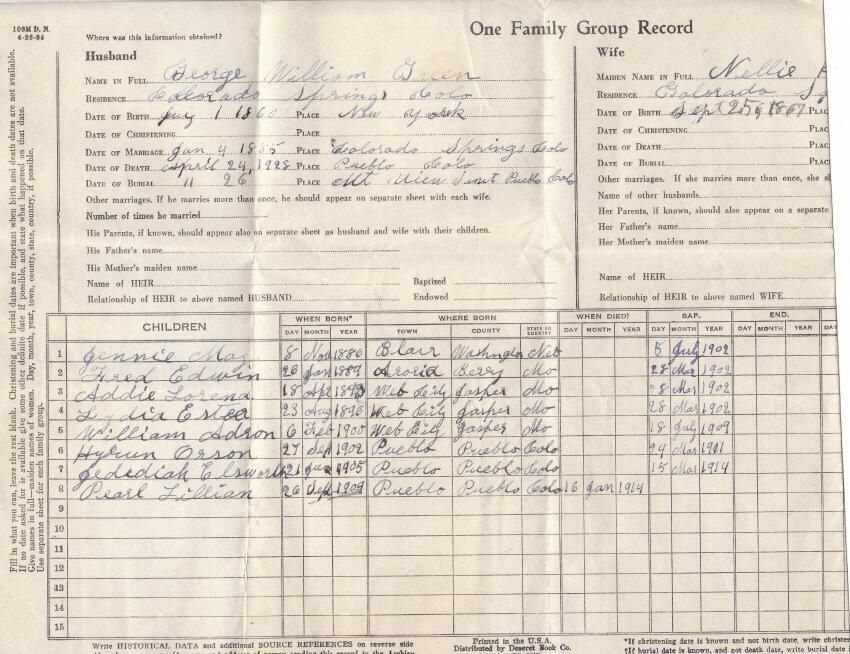 108M D. N.
4-25-84
Where was this information obtained?
One Family Group Record
Husband
NAME IN FULL George William Green
RESIDENCE Colorado Springs Colo
DATE OF BIRTH July 1 1860 PLACE New york
DATE OF CHRISTENING PLACE
DATE OF MARRIAGE Jan 4 PLACE Colorado Springs Colo
DATE OF DEATH April 24, 1928 PLACE Pueblo Colo
DATE OF BURIAL " 26 PLACE Mt View Pueblo Colo
Other marriages. If he married more than once, he should appear on separate sheet with each wife.
Number of times he married
His Parents, if known, should appear also on separate sheet as husband and wife with their children.
His Father's name
His Mother's maiden name
Name of HEIR Baptized
Relationship of HEIR to above named HUSBAND Endowed
Wife
MAIDEN NAME IN FULL Nellie
RESIDENCE Colorado
DATE OF BIRTH Sept 25 1867 PLAC
DATE OF CHRISTENING PLAC
DATE OF DEATH PLAC
DATE OF BURIAL PLAC
Other marriages. If she married more than once, she s
Name of other husbands
Her Parents, if known, should also appear on a separate
Her Father's name
Her Mother's maiden name
Name of HEIR
Relationship of HEIR to above named WIFE
Fill in what you can, leave the rest blank. Christening and burial dates are important when birth and death dates are not available.
If no date asked for is available give some other definite date if possible, and state what happened on that date.
Give names in full—maiden names of women. Day, month, year, town, county, state, country, if possible.
Use separate sheet for each family group.
CHILDREN WHEN BORN* WHERE BORN WHEN DIED† BAP. END.
DAY MONTH YEAR TOWN COUNTY STATE OR COUNTRY DAY MONTH YEAR DAY MONTH YEAR DAY MONTH YEAR DAY
1 Jennie May 8 Nov 1886 Blair Washington Neb 5 July 1902
2 Fred Edwin 26 Jan 1889 Berry Mo 28 Mar 1902
3 Addie Lorena 18 Apr 1893 Web City Jasper Mo 28 Mar 1902
4 Lydia 23 Aug 1896 Web City Jasper Mo 28 Mar 1902
5 William Adron 6 Feb 1900 Web City Jasper Mo 18 July 1909
6 Hyrum Orson 27 Sep 1902 Pueblo Pueblo Colo 24 Mar 1911
7 Jedediah Elsworth 21 1905 Pueblo Pueblo Colo 15 Mar 1914
8 Pearl Lillian 26 Sep 1909 Pueblo Pueblo Colo 16 Jan 1914
9
10
11
12
13
14
15
Write HISTORICAL DATA and additional SOURCE REFERENCES on reverse side
Printed in the U.S.A.
Distributed by Deseret Book Co.
*If christening date is known and not birth date, write christe
†If burial date is known, and not death date, write burial date i